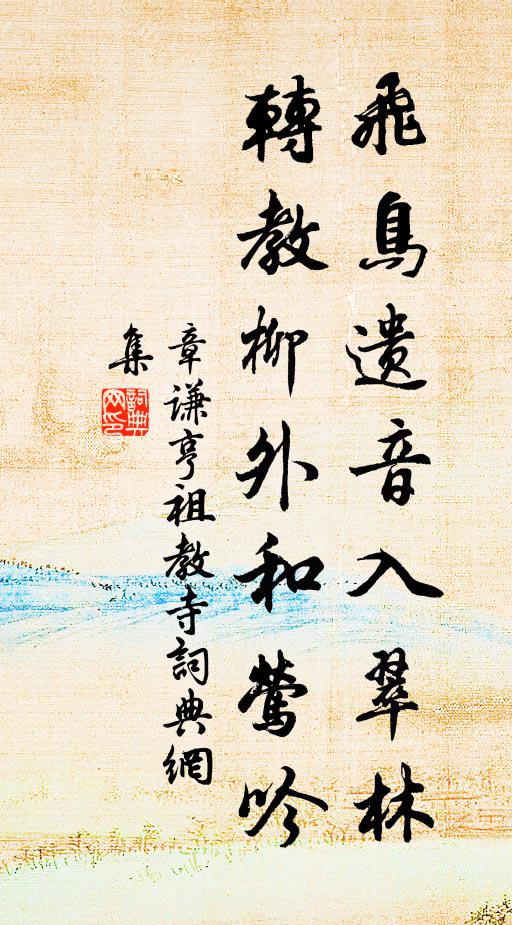 飛鳥遺音入翠林
轉教柳外和鶯吟
章謙亨祖教寺詞典網
集
詞典
网印